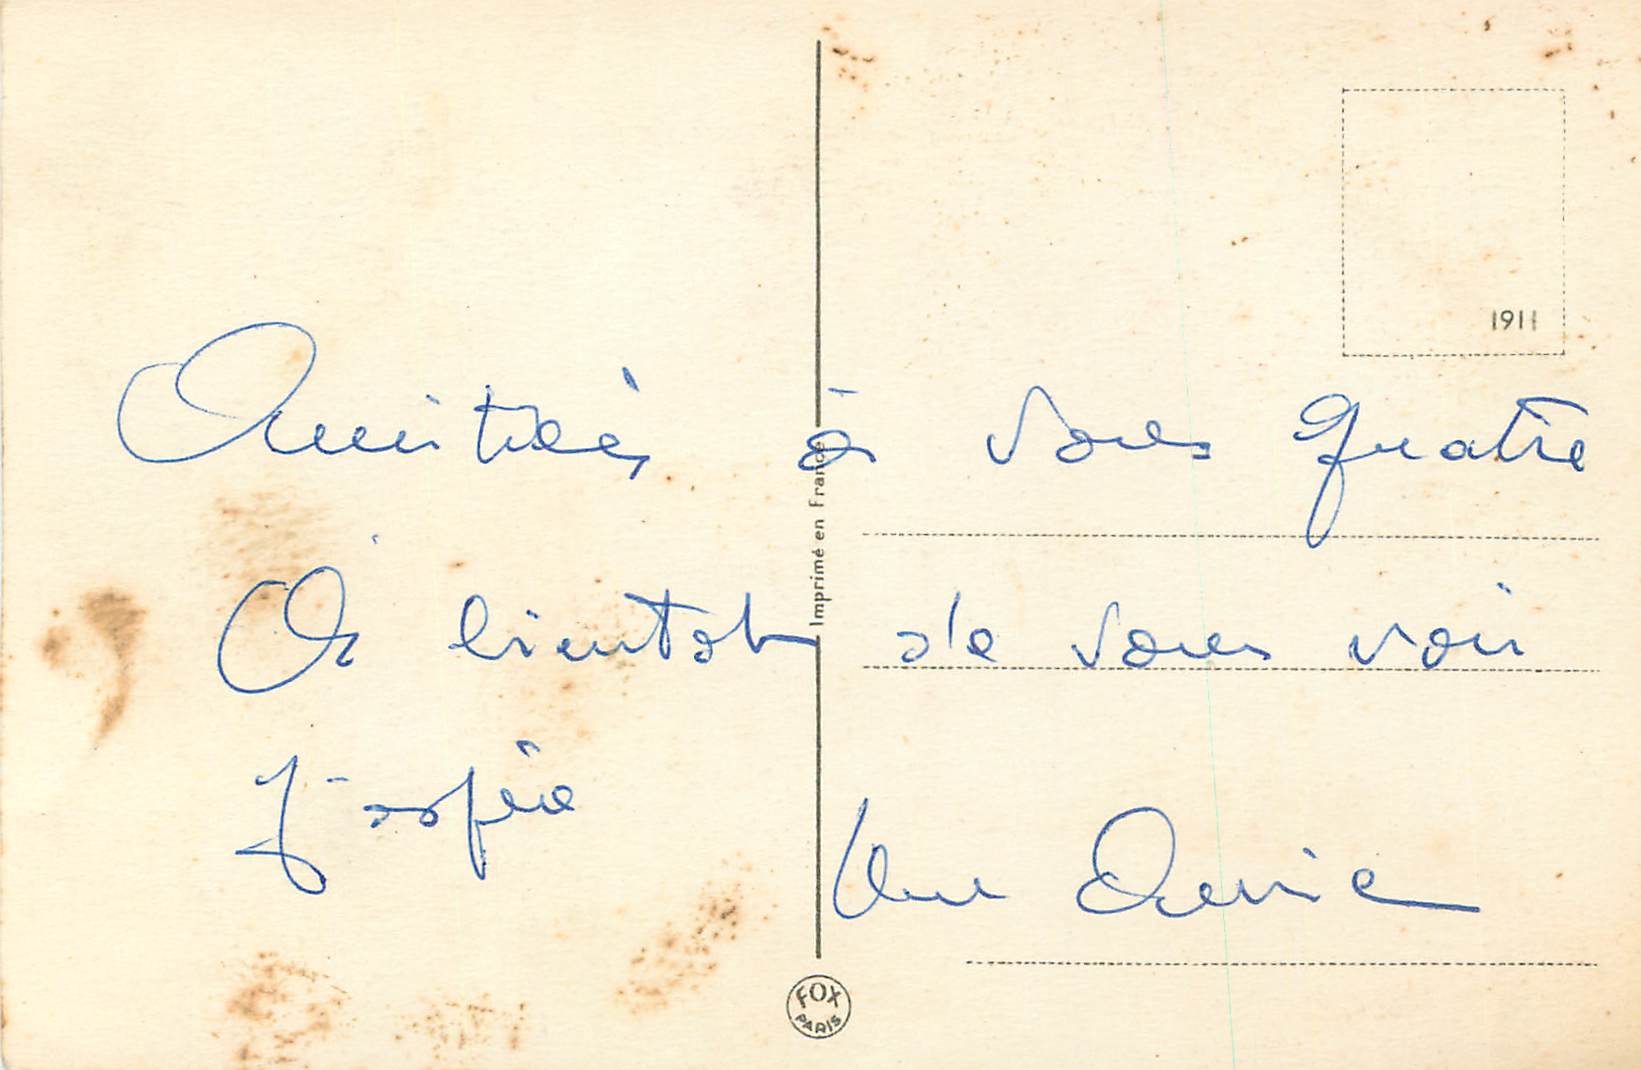 1911
Amitiés à vous quatre
A bientot de vous voir
J'espère
Une Amie
Imprimé en France
FOX
PARIS